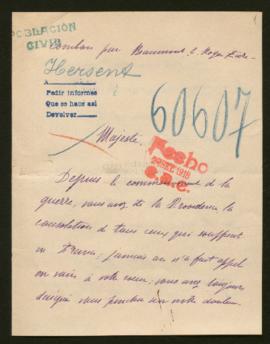 POBLACIÓN
CIVIL
par Beaumont le Roger Eure
Hersent
A
Pedir informes
Que se hace así
Devolver
60607
Majesté
Fecho
1915
Depuis le commencement de la
guerre, vous avez de la Providence la
consolation de tous ceux qui souffrent
en France, jamais on n'a fait appel
en vain à votre cœur; vous avez toujours
daigné vous pencher sur notre douleur.